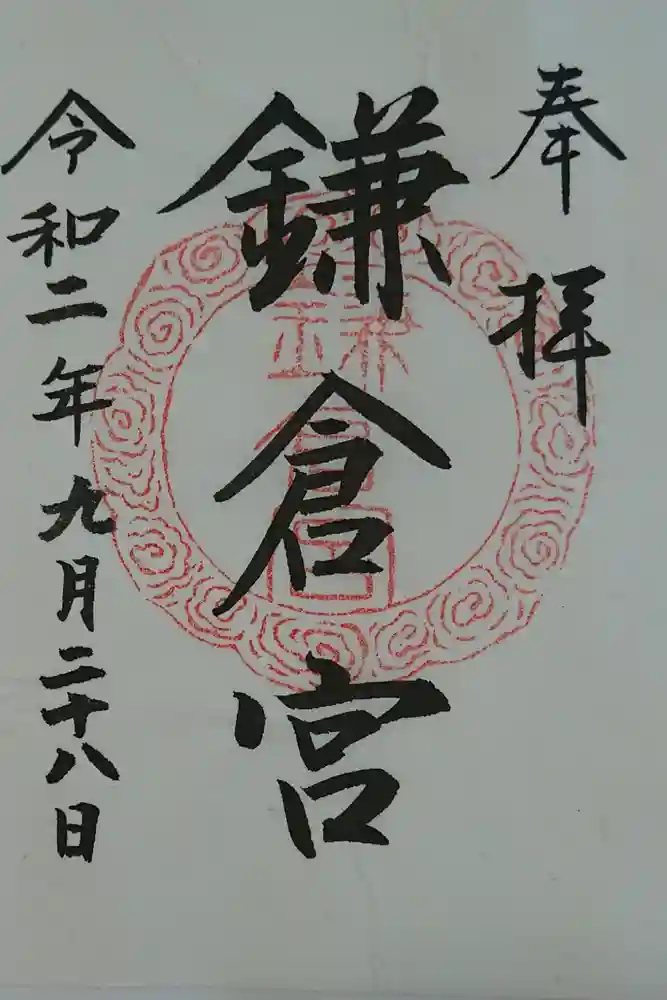 奉拝
鎌倉宮
令和二年九月二十八日
鎌倉宮